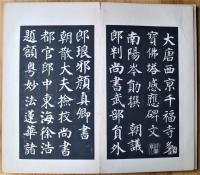 大唐西京千福寺多
寶佛塔感應碑文
南陽岑勛撰 朝議
郎判尚書武部員外
郎琅邪顏真卿書
朝散大夫撿校尚書
都官郎中東海徐浩
題額粵妙法蓮華諸